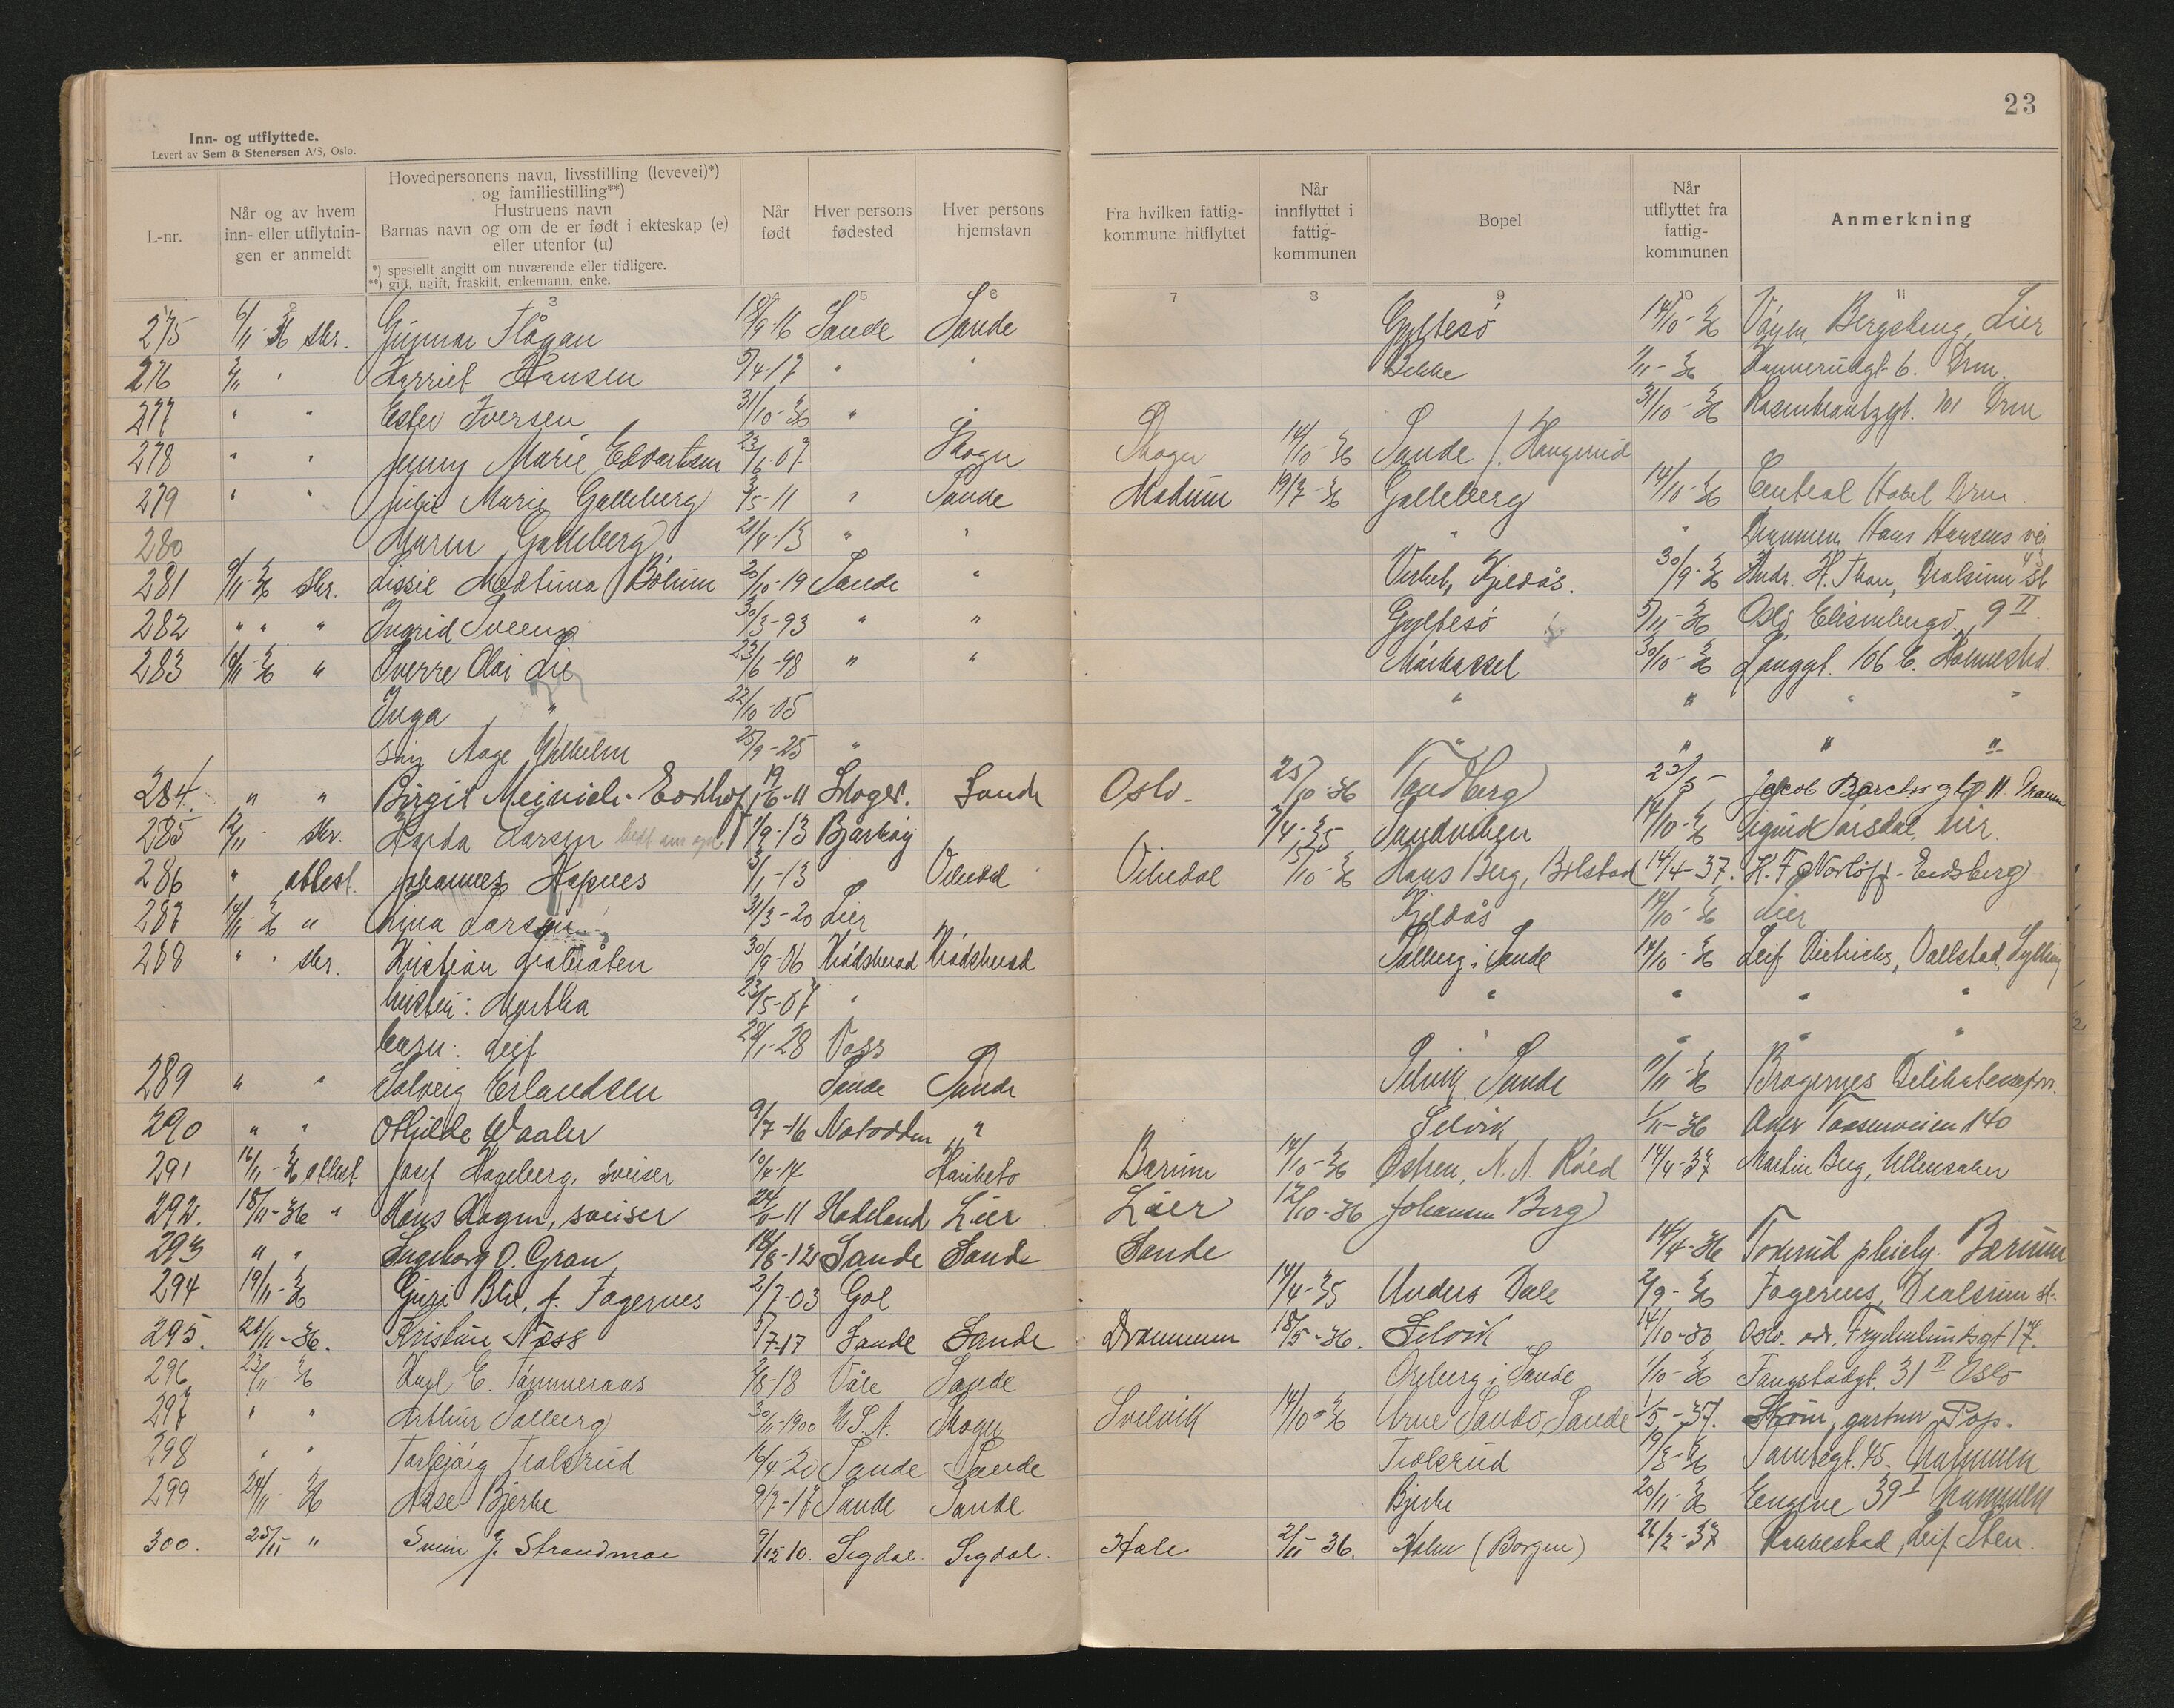 23
Inn- og utflyttede.
Levert av Sem & Stenersen A/S, Oslo.
L-nr.
Når og av hvem inn- eller utflytnin-gen er anmeldt
Hovedpersonens navn, livsstilling (levevei)*) og familiestilling**)
Hustruens navn
Barnas navn og om de er født i ekteskap (e) eller utenfor (u)
*) spesiellt angitt om nuværende eller tidligere.
**) gift, ugift, fraskilt, enkemann, enke.
Når født
Hver persons fødested
Hver persons hjemstavn
Fra hvilken fattig-kommune hitflyttet
Når innflyttet i fattig-kommunen
Bopel
Når utflyttet fra fattig-kommunen
Anmerkning
2 3 5 6 7 8 9 10 11
275 6/11-36 skr. Gunnar Flågan 18/9-16 Sande Sande Gyltesö 14/10-36 Bergshaug, Lier
276 " Harriet Hansen 5/4-17 " " Bekke 1/11-36 6. Drm.
277 " " Ester Iversen 31/10 " " 31/10-36 Rosenkrantzgt. 101 Drm
278 " " Jenny Marie Edvartsen 23/6-07 Skoger Skoger 14/10-36 Sande / Haugerud
279 " " Julie Marie Galleberg 3/5-11 " Sande Modum 19/7-36 Galleberg 14/10-36 Central Hotel Drm.
280 Maren Galleberg 21/4-13 " " " " Drammen Hans Hansens vei
281 9/11-36 skr. Lissie 20/10-19 Sande " Kjeldås. 30/9-36 st
282 " " " Ingrid Sveen 30/3-93 " " Gyltesö 5/11-36 Oslo 9 II
283 10/11-36 " Sverre Olai Lie 23/6-98 " " 30/10-36 Langgt. 106 b. Holmestrd.
Inga " 22/10-05 " " " "
Aage Wilhelm 25/9-25 " " " " "
284. " " Birgit Meinich 19/6-11 Skoger. Sande Oslo. 25/10-36 Tandberg 11 Dramm
285 12/11- skr. Larsen 1/9-13 Bjarköy 7/4-35 Sandviken 14/10-36 Lier.
286 " attest. Johannes Hapnes 3/1-13 Vikedal Vikedal 15/10-36 Hans Berg, Bolstad 14/4-37. Eidsberg
287 14/11-36 " Lina Larsen 31/3-20 Lier " Kjeldås 14/10-36 Lier
288 " " skr. Kristian 30/9-06 Krödsherad Krödsherad Solberg i Sande 14/10-36 Leif Dietrichs, Vallstad, Sylling
hustru: Martha 23/5-07 " " " " "
barn: Leif 28/1-28 Voss " " " "
289 " " Solveig Erlandsen Sande Sande Selvik Sande 11/11-36 Bragernes Delikatessforr.
290 " " Othilde Waaler 9/7-16 Notodden " Selvik 1/11-36 Aker Taasenveien 140
291 16/11-36 attest Josef Hageberg, sveiser 10/4-14 Bærum 14/10-36 Östren, 14/4-37 Martin Berg, Ullensaker
292. 18/11-36 " Hans Hagen, sveiser Hadeland Lier Lier 12/10-36 Johannen Berg
293 " " Ingeborg O. Gran 18/8-12 Sande Sande Sande 14/4-36 pleiehj. Bærum
294 19/11-36 Guri Blie, f. Fagernes 2/7-03 Gol 14/4-35 Anders Dale 2/9-36 Fagernes, st.
295. 21/11-36. Kristine Næss 5/7-17 Sande Sande Drammen 18/5-36. Selvik 14/10-36 Oslo. adr. Frydenlundsgt 17.
296 23/11-36 Karl E. Tömmeraas 2/8-18 Våle Sande i Sande 1/10-36 31 II Oslo
297 " " Arthur Solberg 30/11-1900 U.S.A. Skoger Svelvik 14/10-36 Arne Sandö, Sande 1/5-37. Ström, gartner
298 " " Torbjörg Trolsrud 16/4-20 Sande Sande Trolsrud 19/8-36 Tomtegt. 45. Drammen
299 24/11-36 Aase Bjerke 9/7-17 Sande Sande Bjerke 20/11-36 Engene 39 I Drammen
300. 25/11 " Svein J. Strandmoe 9/12 10. Sigdal. Sigdal. Hole 2/11-36. Holm (Borgen) 26/2-37 Rakkestad, Leif Sten.